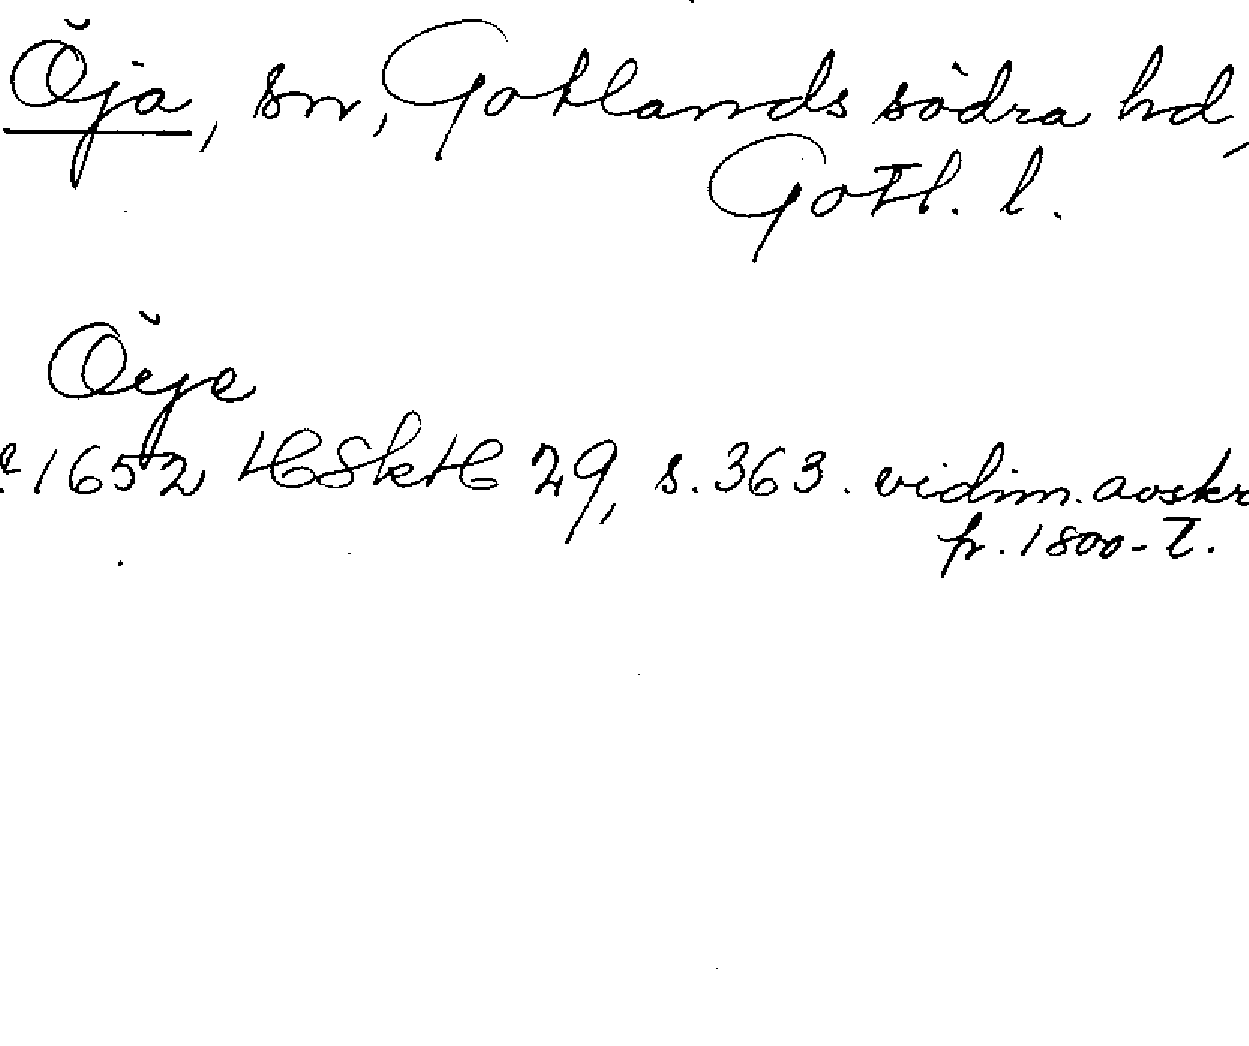 Öja, sn, Gotlands södra hd,
Gotl. l.
Öije
1652 HSkH 29, s. 363. vidim. avskr
fr. 1800-t.